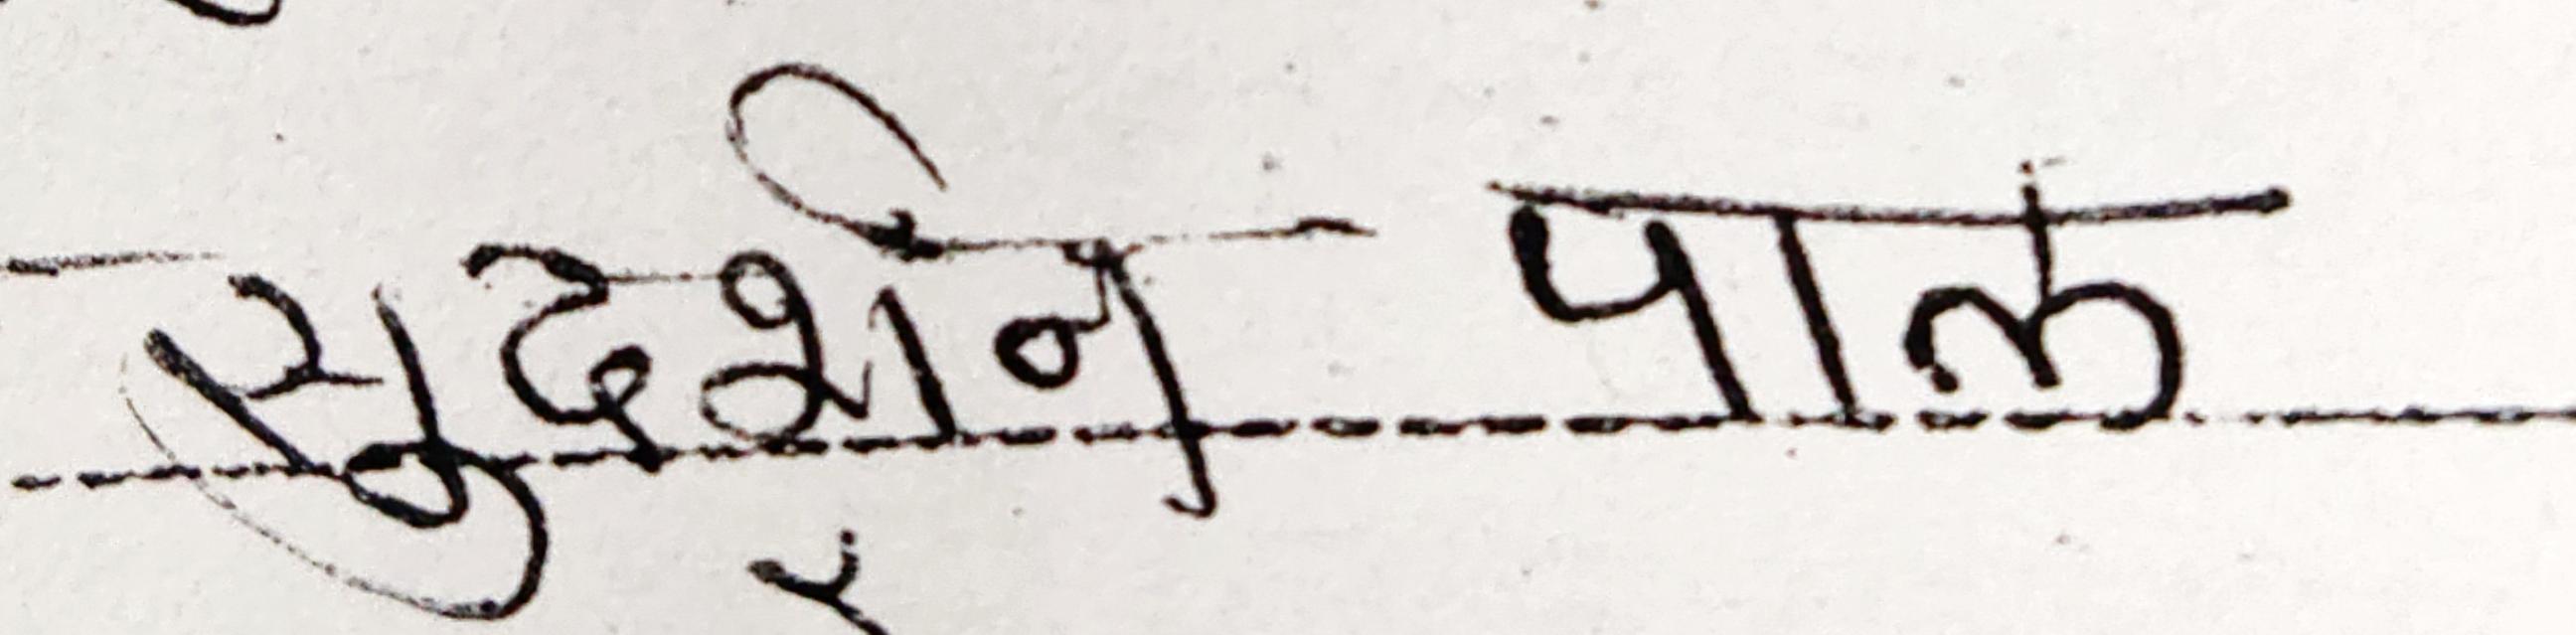 सुदर्शन पाल